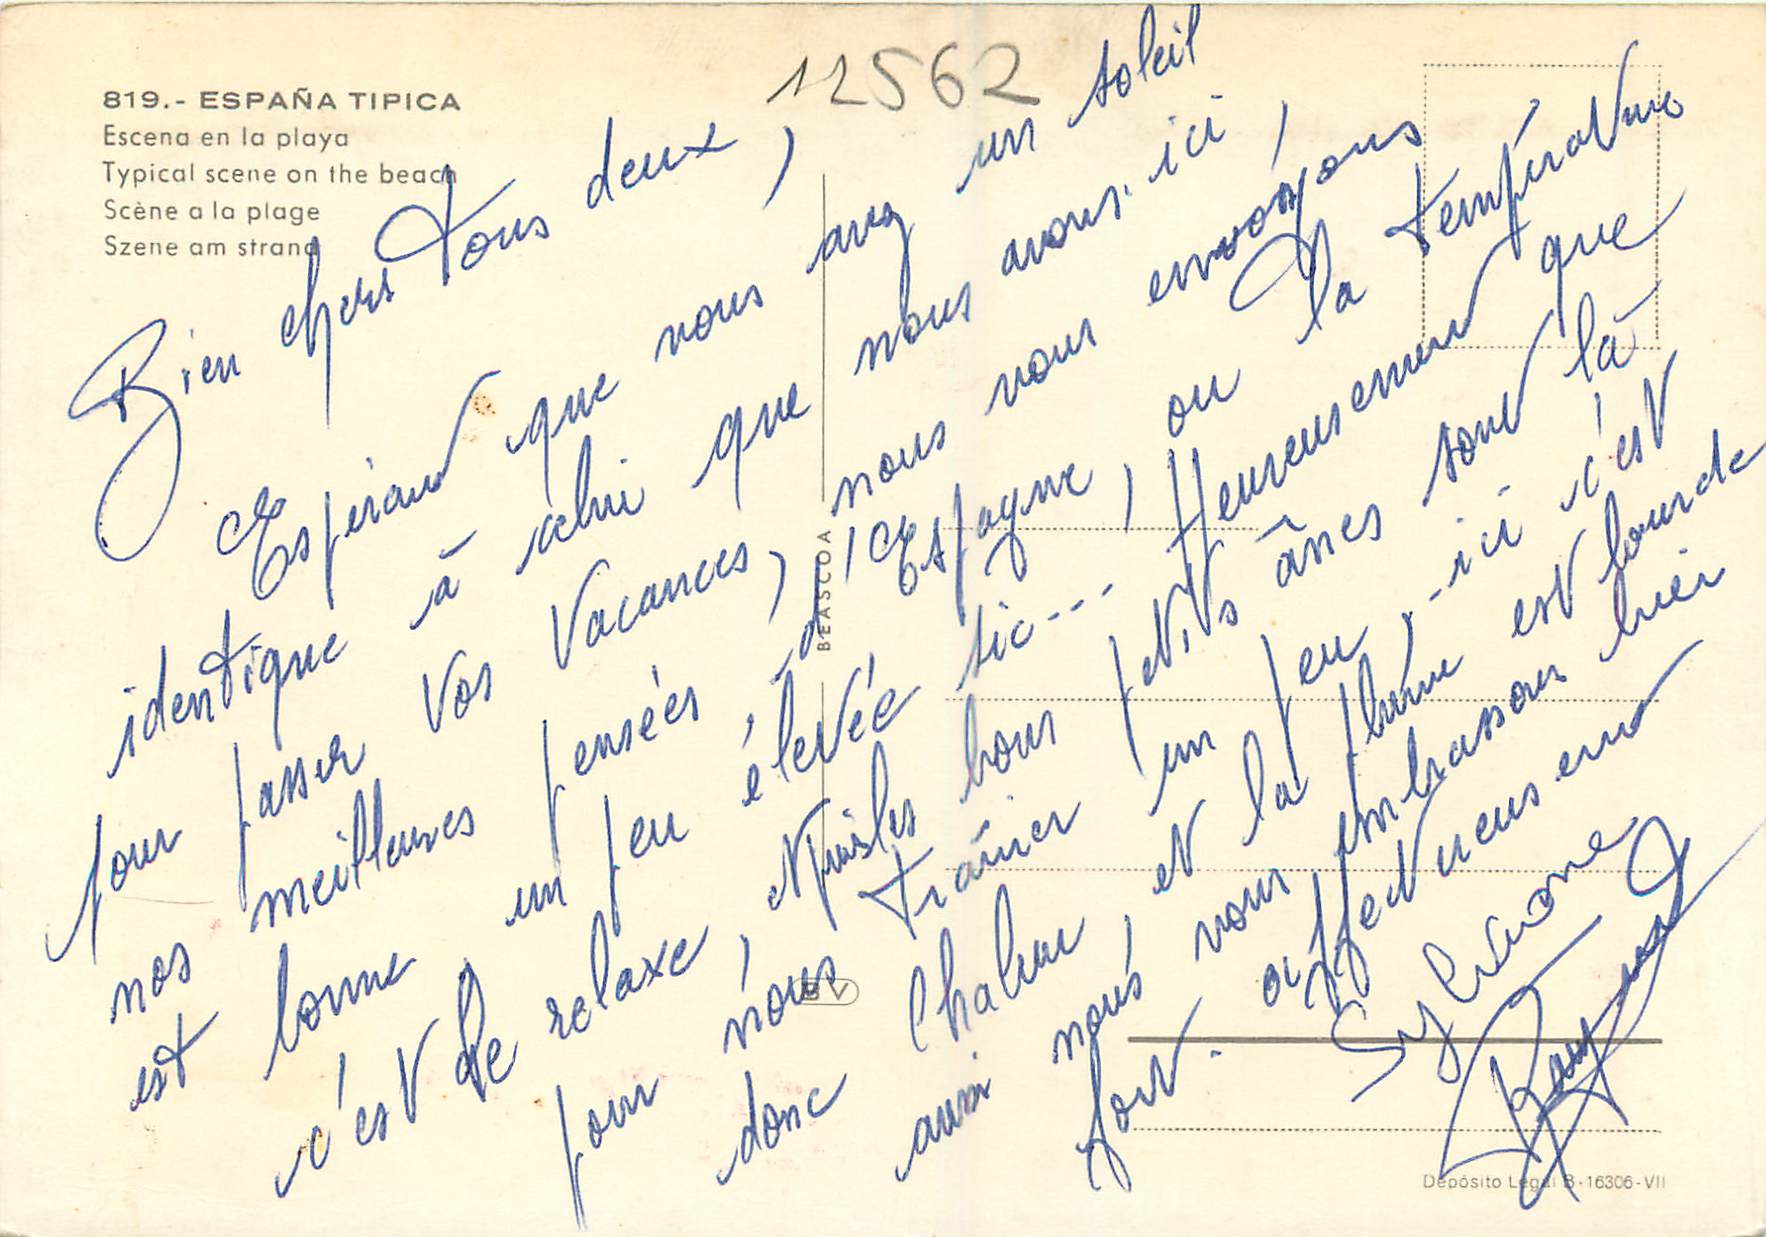 819.- ESPAÑA TIPICA
Escena en la playa
Typical scene on the beach
Scène a la plage
Szene am strand
12562
BEASCOA
BV
Depósito Legal B-16306-VII
Bien chers tous deux,
Espérant que vous avez un soleil
identique à celui que nous avons ici,
pour passer vos vacances, nous vous envoyons
nos meilleures pensées d'Espagne, ou la température
est bonne un peu élevée sic... Heureusement que
c'est de relaxe, et puis les bons petits ânes sont là
pour nous trainer un peu, ici c'est
donc chaleur, et la plume est lourde
aussi nous vous embrassons bien
fort. affectueusement
Sylviane